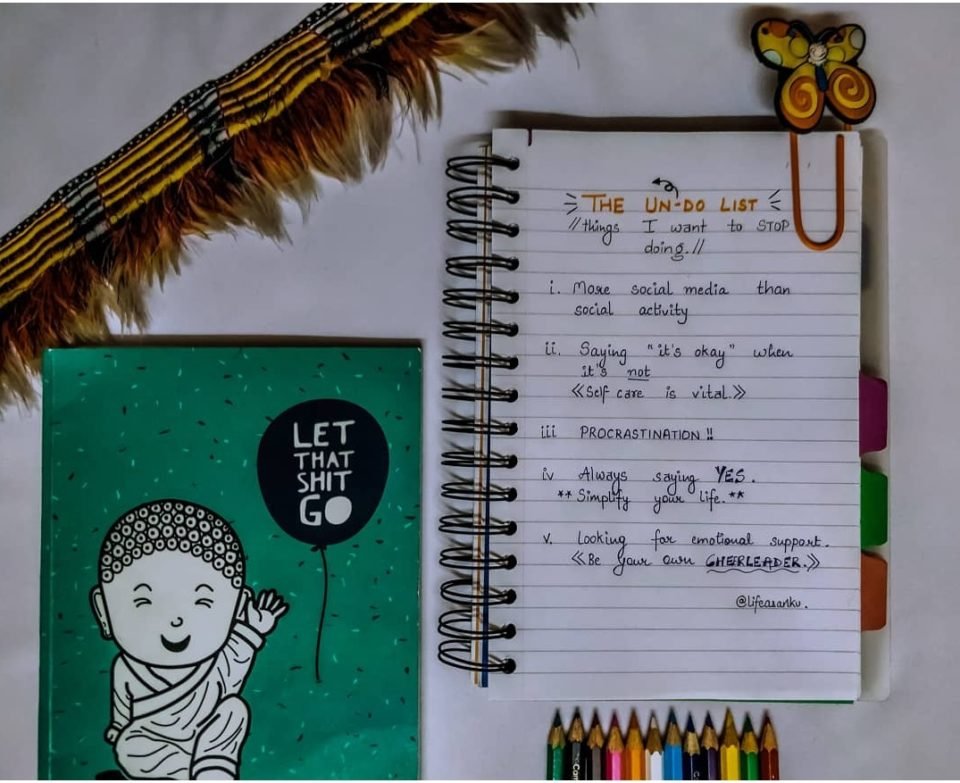 LET
THAT
SHIT
GO
THE UN-DO LIST
//things I want to STOP
doing.//
i. More social media than
social activity
ii. Saying "it's okay" when
it's not
《Self care is vital.》
iii PROCRASTINATION !!
iv Always saying YES.
** Simplify your life. **
v. Looking for emotional support.
《Be your own CHEERLEADER.》
@lifeasanku.